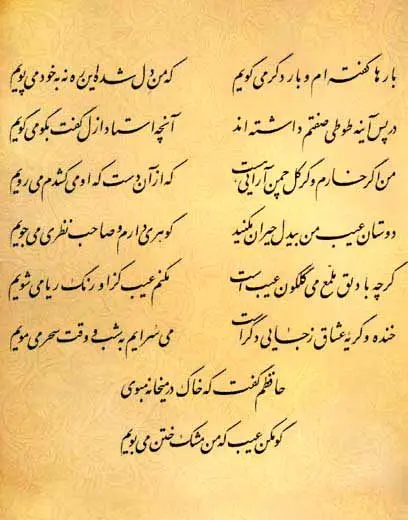 بارها گفته ام و بار دگر می گویم که من دل شده این ره نه به خود می پویم
در پس آینه طوطی صفتم داشته اند آنچه استاد ازل گفت بگو می گویم
من اگر خارم و گر گل چمن آرایی هست که از آن دست که او می کشدم می رویم
دوستان عیب من بیدل حیران مکنید گوهری دارم و صاحب نظری می جویم
گرچه با دلق ملمع می گلگون عیب است مکنم عیب کز او رنگ ریا می شویم
خنده و گریه عشاق ز جایی دگر است می سرایم به شب و وقت سحر می مویم
حافظم گفت که خاک در میخانه مبوی
گو مکن عیب که من مشک ختن می بویم